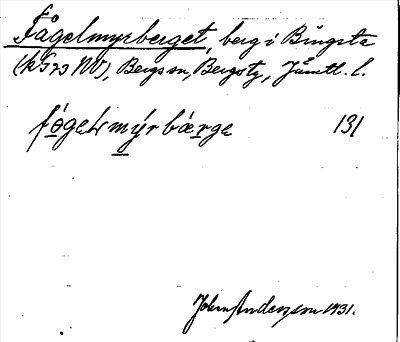 Fågelmyrberget, berg i Bingsta
(k 573 NV), Bergs sn, Bergs tg, Jämtl. l.
fógelmýrbärge 131
John Anderzon 1931.